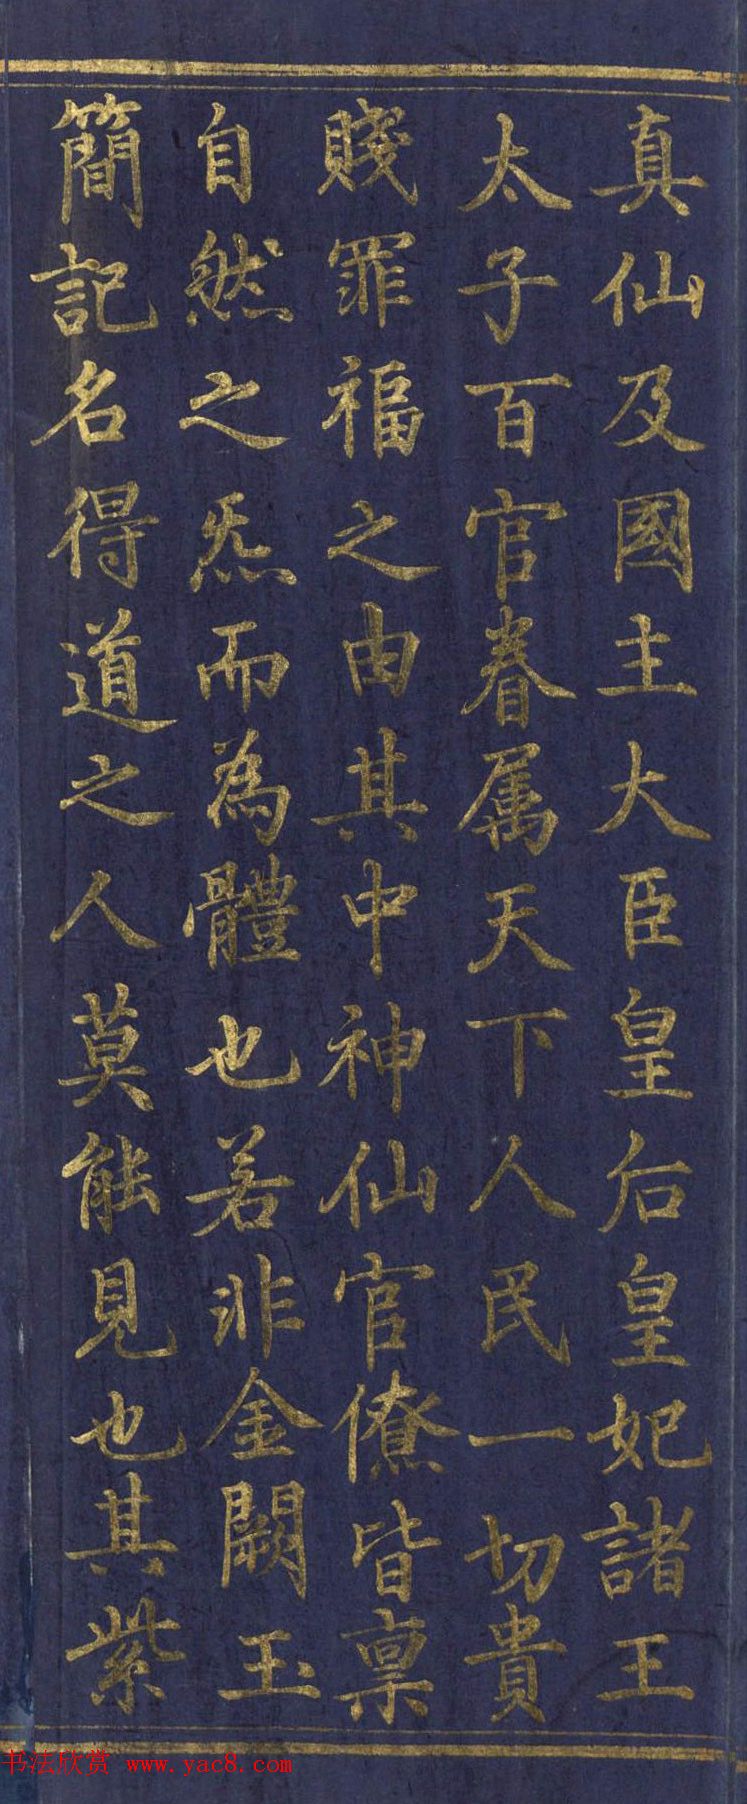 真仙及國主大臣皇后皇妃諸王
太子百官眷属天下人民一切貴
賤罪福之由其中神仙官僚皆禀
自然之炁而為體也若非金闕玉
簡記名得道之人莫能見也其紫
书法欣赏 www.yac8.com